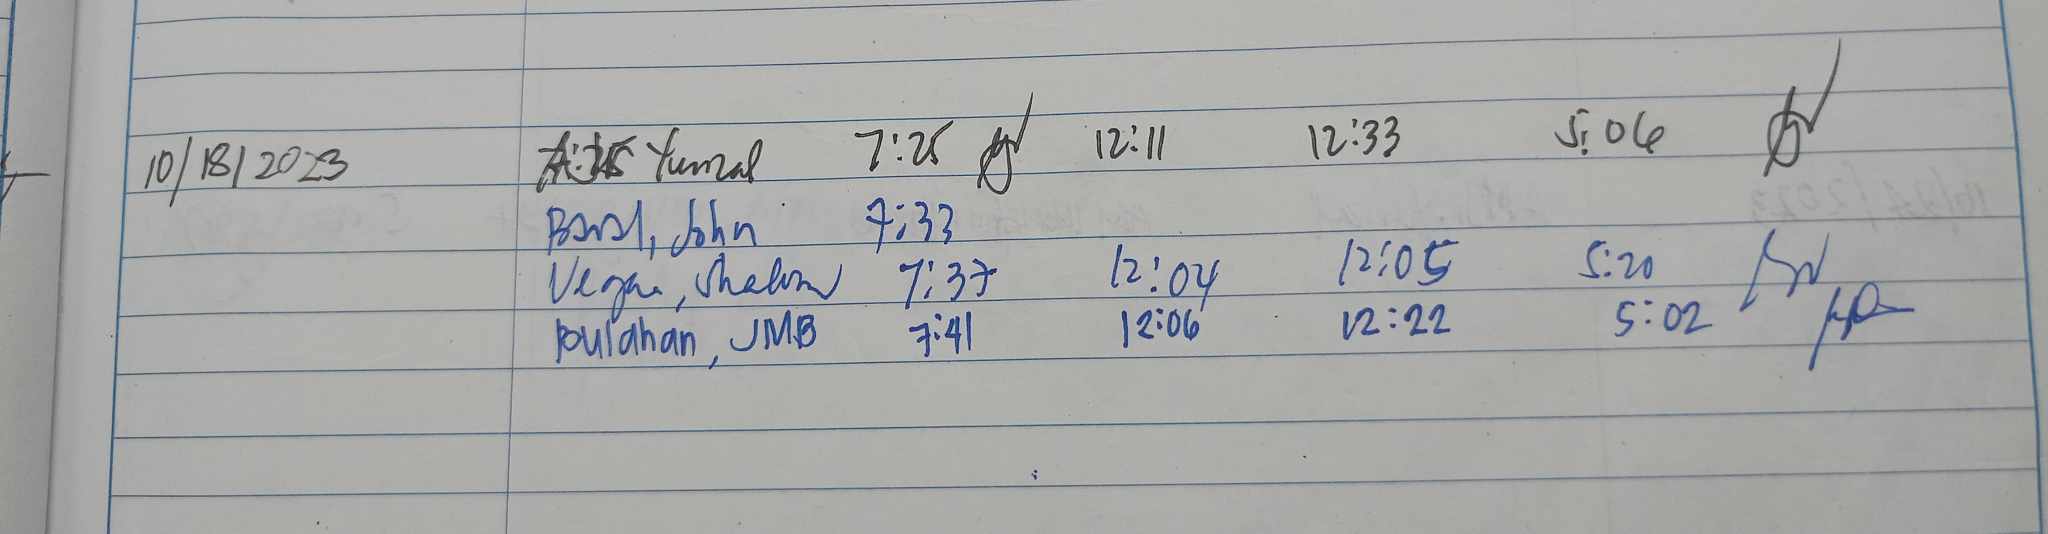 10/18/2023 Yumal 7:25 12:11 12:33 5:06
John 7:33
Vega, 7:37 12:04 12:05 5:20
Bulahan, JMB 7:41 12:06 12:22 5:02